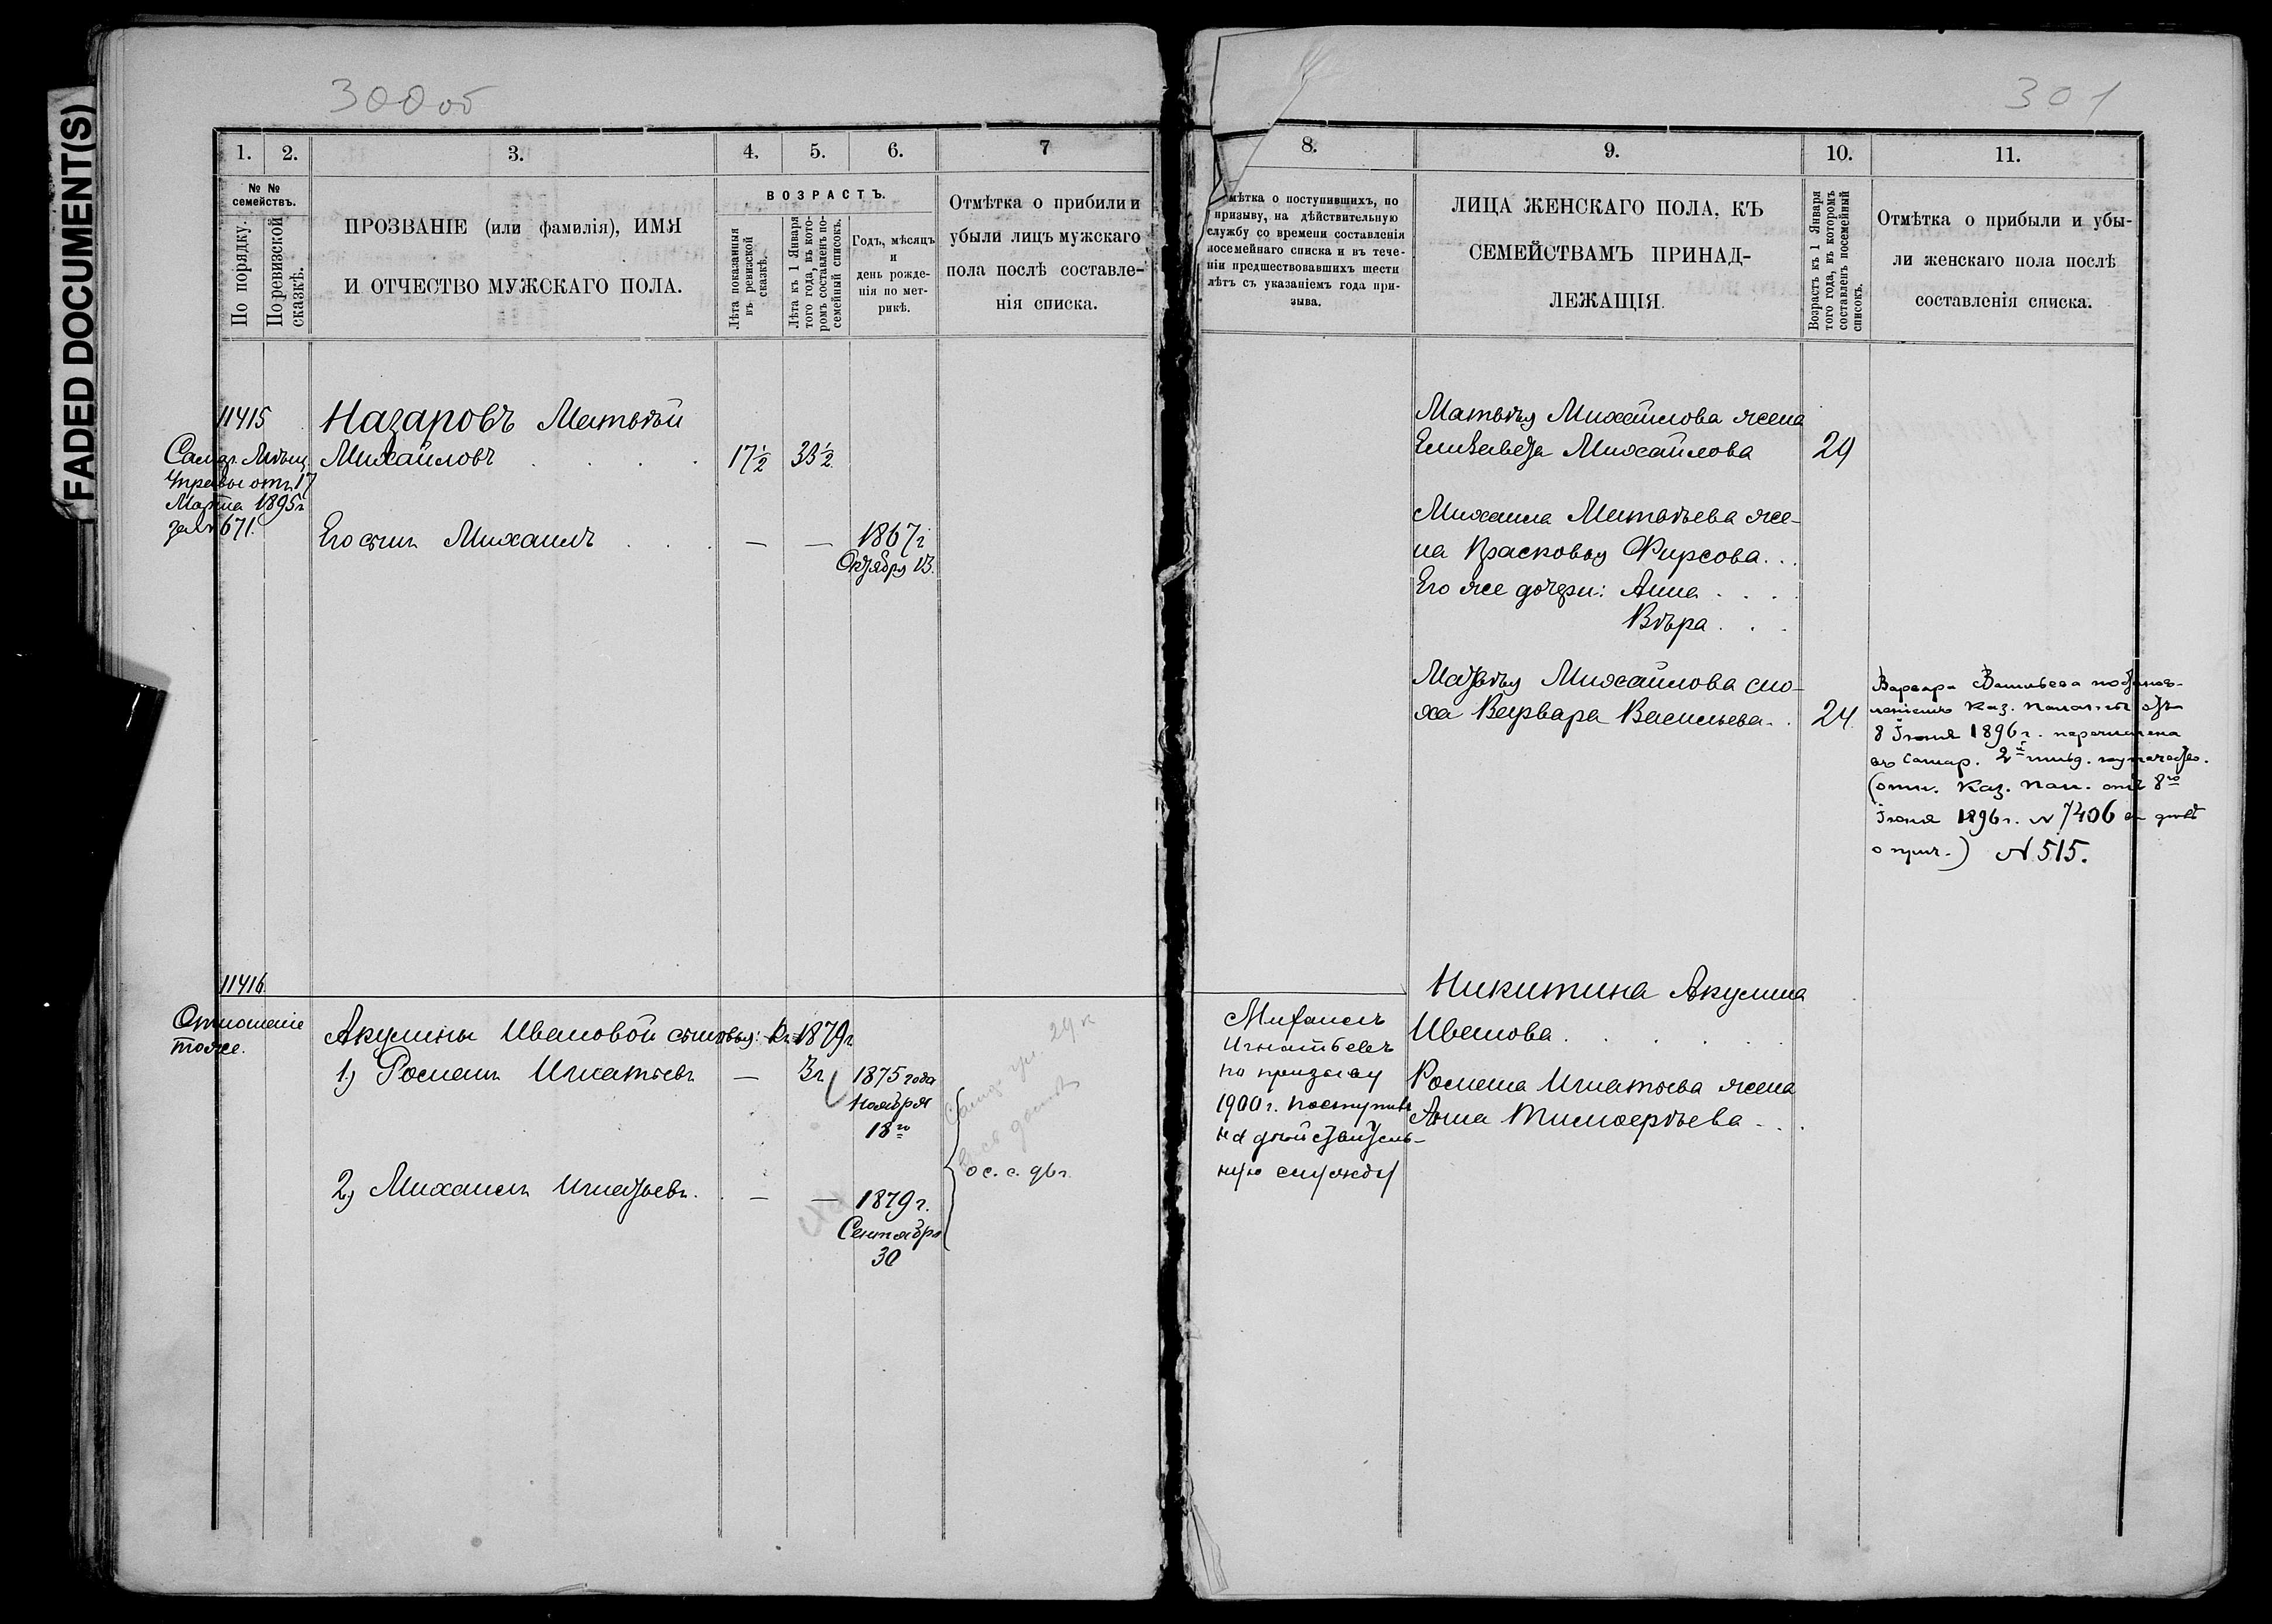 FADED DOCUMENT(S)
300 об
1.
2.
3.
4.
5.
6.
7
№ №
семействъ.
По порядку.
По ревизской
сказкѣ.
ПРОЗВАНІЕ (или фамилія), ИМЯ
И ОТЧЕСТВО МУЖСКАГО ПОЛА.
ВОЗРАСТЪ.
Лѣта показанныя
въ ревизской
сказкѣ.
Лѣта къ 1 Января
того года, въ кото-
ромъ составленъ по-
семейный списокъ.
Годъ, мѣсяцъ
и
день рожде-
нія по мет-
рикѣ.
Отмѣтка о прибыли и
убыли лицъ мужскаго
пола послѣ составле-
нія списка.
11415
Назаровъ Матвѣй
Михайловъ 17½ 33½
Управы отъ 17
Марта 1895г
за № 671.
Его сынъ Михаилъ — — 1867г
Октября 13.
11416
Отношеніе
тоже.
Акулины Ивановой сыновья: 1879г
1) Романъ Игнатьевъ — 3г 1875 года
Ноября
18го
2) Михаилъ Игнатьевъ. — — 1879г.
Сентября
30
о с. с. 96г.
301
8.
9.
10.
11.
мѣтка о поступившихъ, по
призыву, на дѣйствительную
службу со времени составленія
посемейнаго списка и въ тече-
ніи предшествовавшихъ шести
лѣтъ съ указаніемъ года при-
зыва.
ЛИЦА ЖЕНСКАГО ПОЛА, КЪ
СЕМЕЙСТВАМЪ ПРИНАД-
ЛЕЖАЩІЯ.
Возрастъ къ 1 Января
того года, въ которомъ
составленъ посемейный
списокъ.
Отмѣтка о прибыли и убы-
ли женскаго пола послѣ
составленія списка.
Матвѣя Михайлова жена
Елизавета Михайлова 29
Михаила Матвѣева же-
на Прасковья Фирсова...
Его же дочери: Анна
Вѣра
Матвѣя Михайлова сно-
ха Варвара Васильева 24.
Варвара Васильева постанов-
леніемъ Каз. Палаты отъ
8 Іюня 1896г. перечислена
въ Самар. 2й гильд. купечество.
(отн. Каз. Пал. отъ 8го
Іюня 1896г. № 7406 въ дѣлѣ
о прич.) № 515.
Никитина Акулина
Иванова
Михаилъ
Игнатьевъ
по призыву
1900г. поступилъ
на дѣйствитель-
ную службу
Романа Игнатьева жена
Анна Тимофѣева